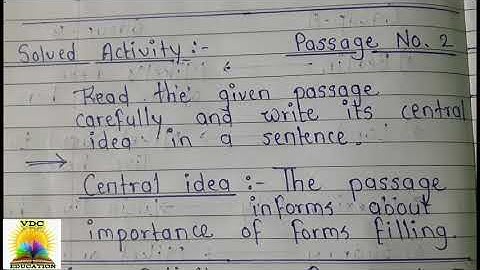 Solved Activity :- Passage No. 2
Read the given passage
carefully and write its central
idea in a sentence.
Central idea :- The passage
informs about
importance of forms filling.
VDC
EDUCATION